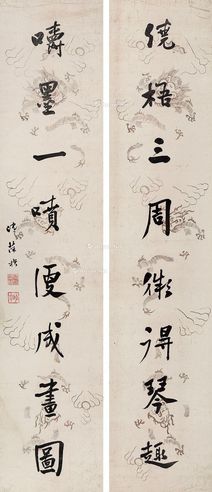 倚梧三周微得琴趣
嚼墨一噴便成畫圖